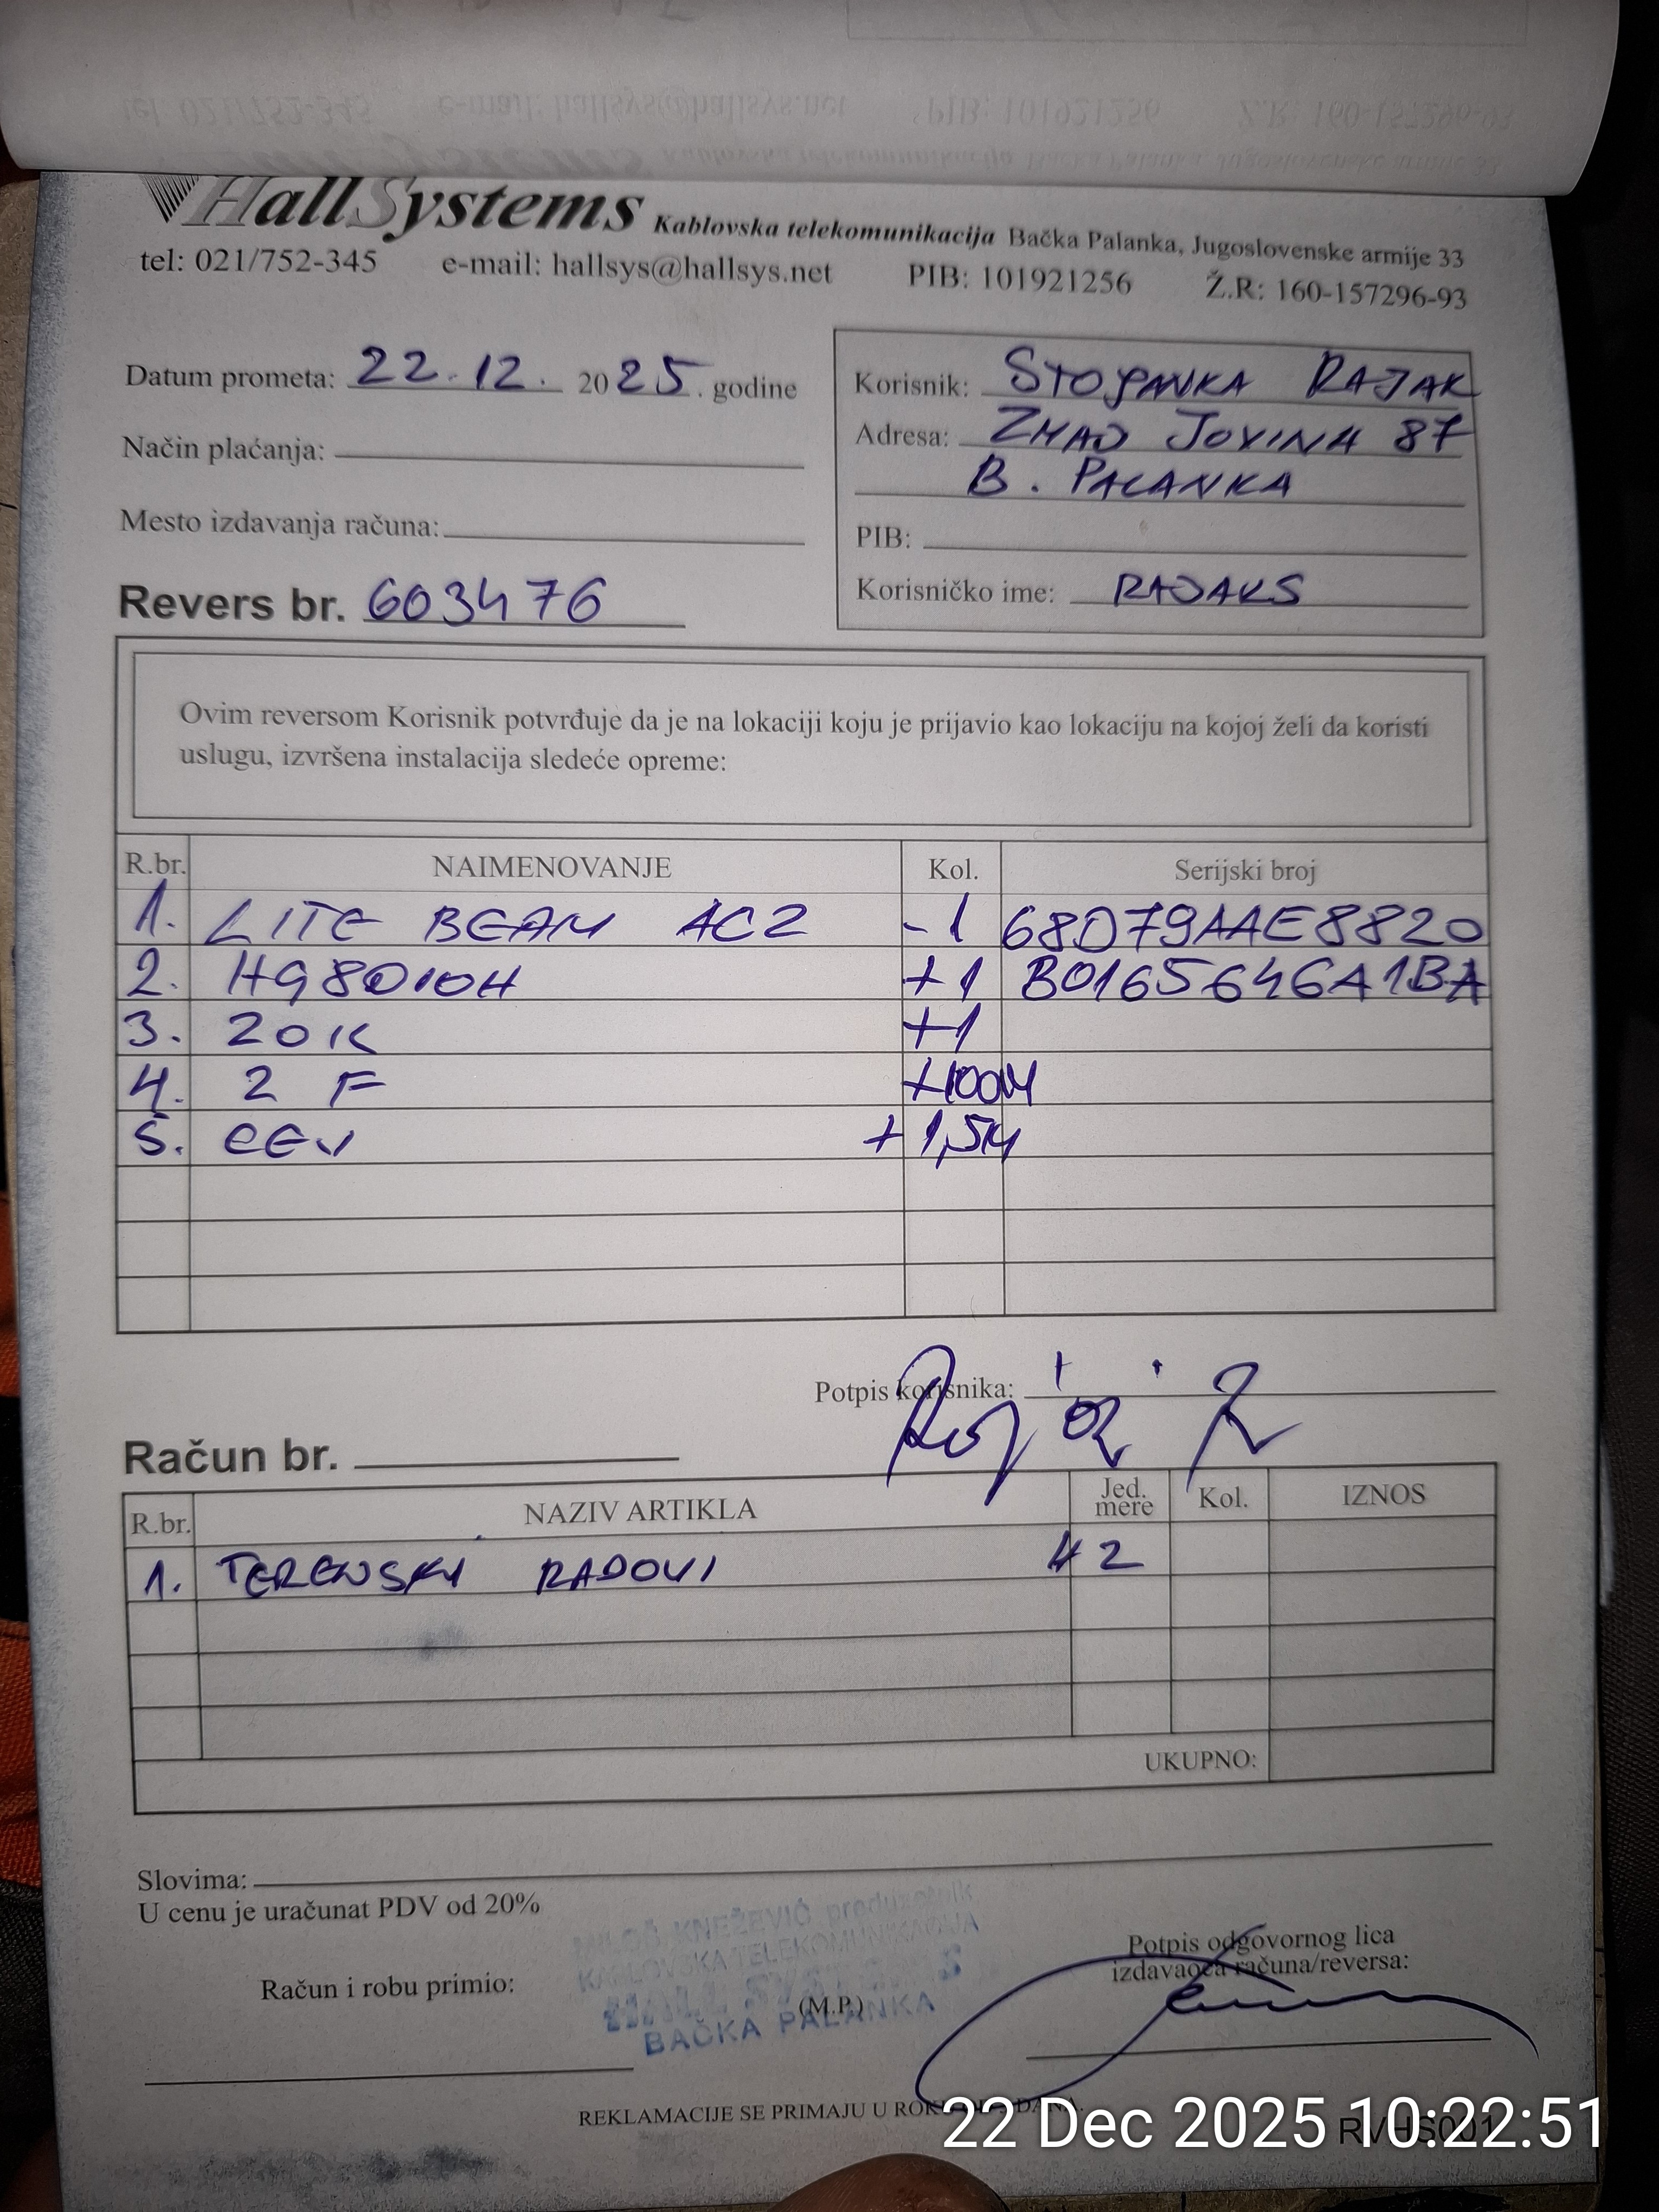 HallSystems Kablovska telekomunikacija Bačka Palanka, Jugoslovenske armije 33
tel: 021/752-345 e-mail: hallsys@hallsys.net PIB: 101921256 Ž.R: 160-157296-93
Datum prometa: 22.12. 2025. godine
Način plaćanja:
Mesto izdavanja računa:
Revers br. 603476
Korisnik: STOJANKA RAJAK
Adresa: ZMAJ JOVINA 87
B. PALANKA
PIB:
Korisničko ime: RAJAKS
Ovim reversom Korisnik potvrđuje da je na lokaciji koju je prijavio kao lokaciju na kojoj želi da koristi
uslugu, izvršena instalacija sledeće opreme:
R.br. NAIMENOVANJE Kol. Serijski broj
1. LITE BEAM AC2 -1 68D79AAE8820
2. HG8010H +1 B0165646A1BA
3. 20K +1
4. 2 F +100M
5. CEV +1,5M
Potpis korisnika:
Račun br.
R.br. NAZIV ARTIKLA Jed. mere Kol. IZNOS
1. TERENSKI RADOVI H2
UKUPNO:
Slovima:
U cenu je uračunat PDV od 20%
MILOŠ KNEŽEVIĆ preduzetnik
KABLOVSKA TELEKOMUNIKACIJA
HALL SYSTEMS
BAČKA PALANKA
Račun i robu primio:
(M.P.)
Potpis odgovornog lica
izdavaoca računa/reversa:
REKLAMACIJE SE PRIMAJU U ROKU DANA.
RVHS001
22 Dec 2025 10:22:51